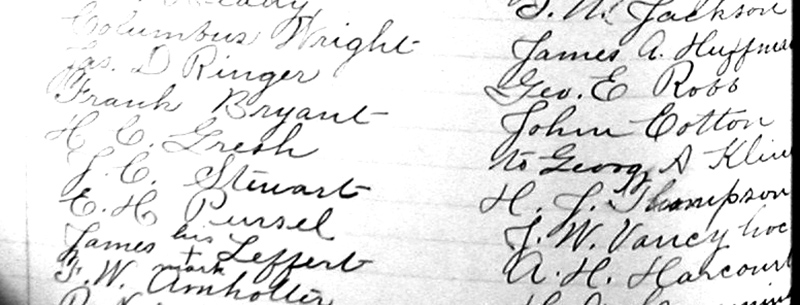 Columbus Wright
Jas. D Ringer
Frank Bryant
H. C. Gresh
J. C. Stewart
E. H Pursel
James his Leffert
mark
F. W. Amholter
T. N. Jackson
James A. Huffma
Geo. E Robb
John Cotton
to Georg A Klin
H. J. Thompson
J. W. Vancy
A. H. Harcourt